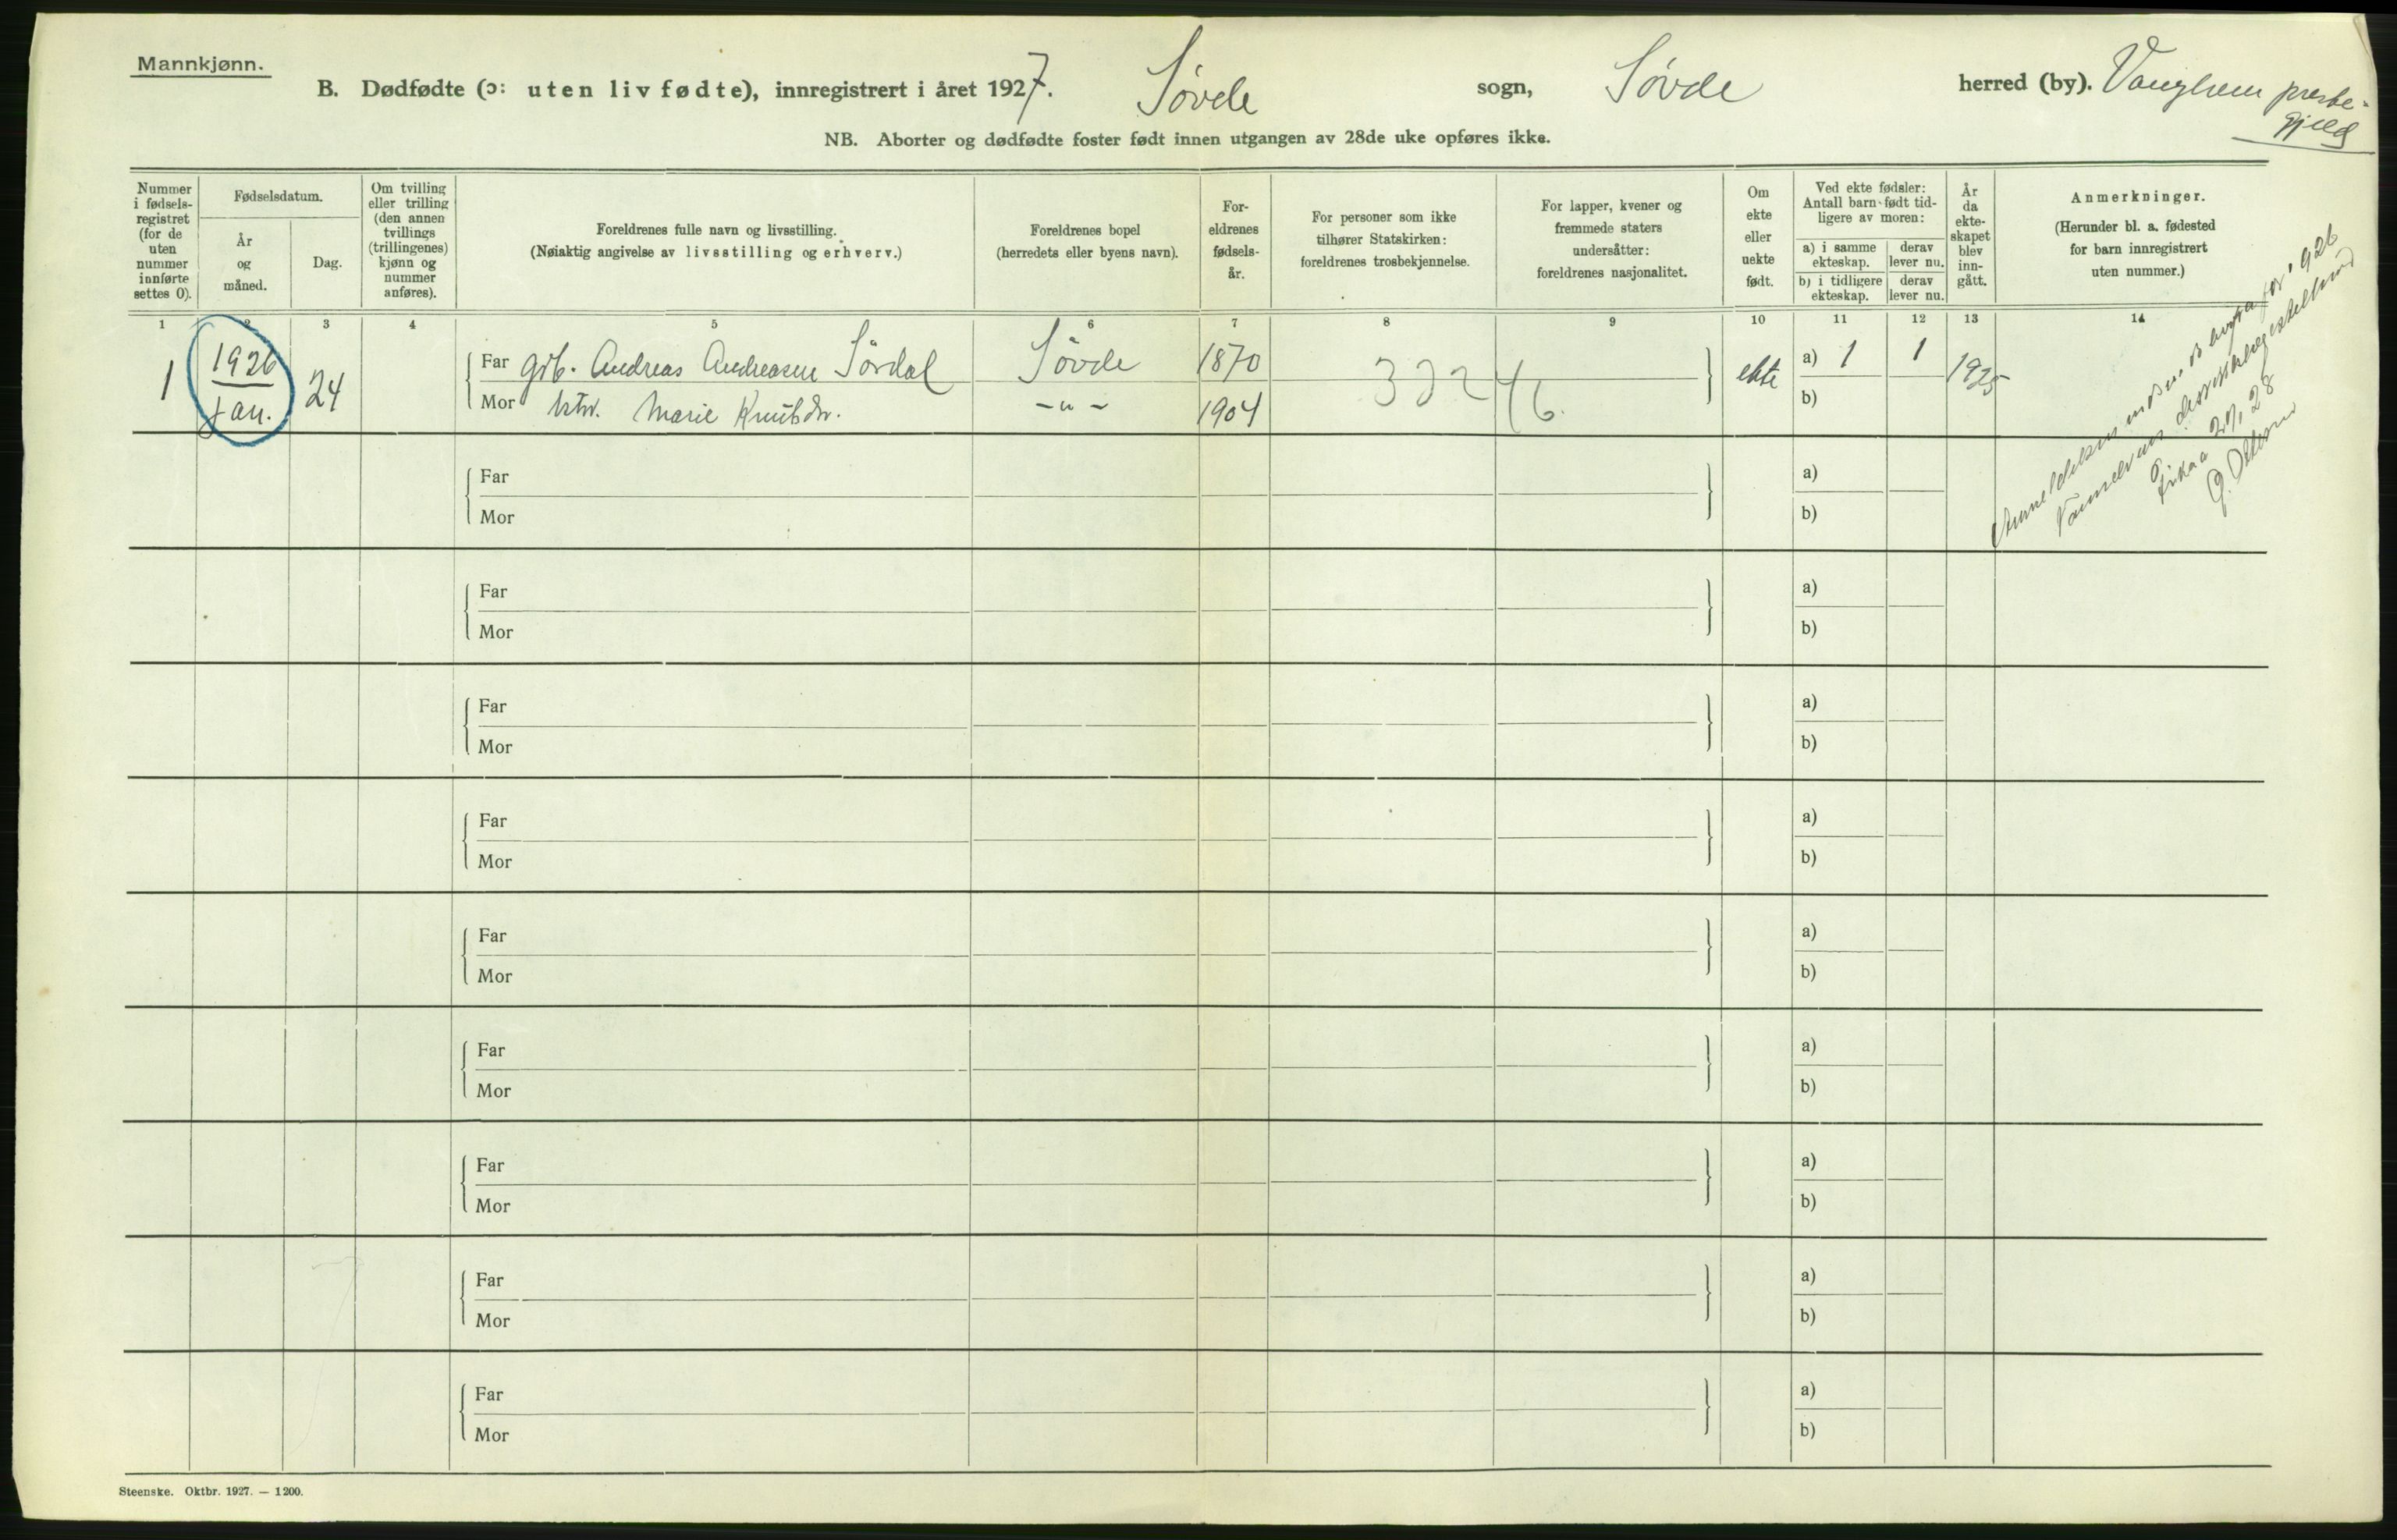 Mannkjønn.
B. Dødfødte (ɔ: uten liv fødte), innregistrert i året 1927. Søvde sogn, Søvde herred (by). preste-
gjeld
NB. Aborter og dødfødte foster født innen utgangen av 28de uke opføres ikke.
Nummer
i fødsels-
registret
(for de
uten
nummer
innførte
settes 0).
Fødselsdatum.
År
og
måned.
Dag.
Om tvilling
eller trilling
(den annen
tvillings
(trillingenes)
kjønn og
nummer
anføres).
Foreldrenes fulle navn og livsstilling.
(Nøiaktig angivelse av livsstilling og erhverv.)
Foreldrenes bopel
(herredets eller byens navn).
For-
eldrenes
fødsels-
år.
For personer som ikke
tilhører Statskirken:
foreldrenes trosbekjennelse.
For lapper, kvener og
fremmede staters
undersåtter:
foreldrenes nasjonalitet.
Om
ekte
eller
uekte
født.
Ved ekte fødsler:
Antall barn født tid-
ligere av moren:
a) i samme
ekteskap.
derav
lever nu.
b) i tidligere
ekteskap.
derav
lever nu.
År
da
ekte-
skapet
blev
inn-
gått.
Anmerkninger.
(Herunder bl. a. fødested
for barn innregistrert
uten nummer.)
1 2 3 4 5 6 7 8 9 10 11 12 13 14
1 1926 Jan. 24
Far grb. Andreas Andreasen Sørdal Søvde 1870
Mor Marie Knutsdr. -"- 1904
332 46.
ekte a) 1 1 1925
b)
Far a)
Mor b)
Far a)
Mor b)
Far a)
Mor b)
Far a)
Mor b)
Far a)
Mor b)
Far a)
Mor b)
Far a)
Mor b)
Far a)
Mor b)
Far a)
Mor b)
Steenske. Oktbr. 1927. — 1200.